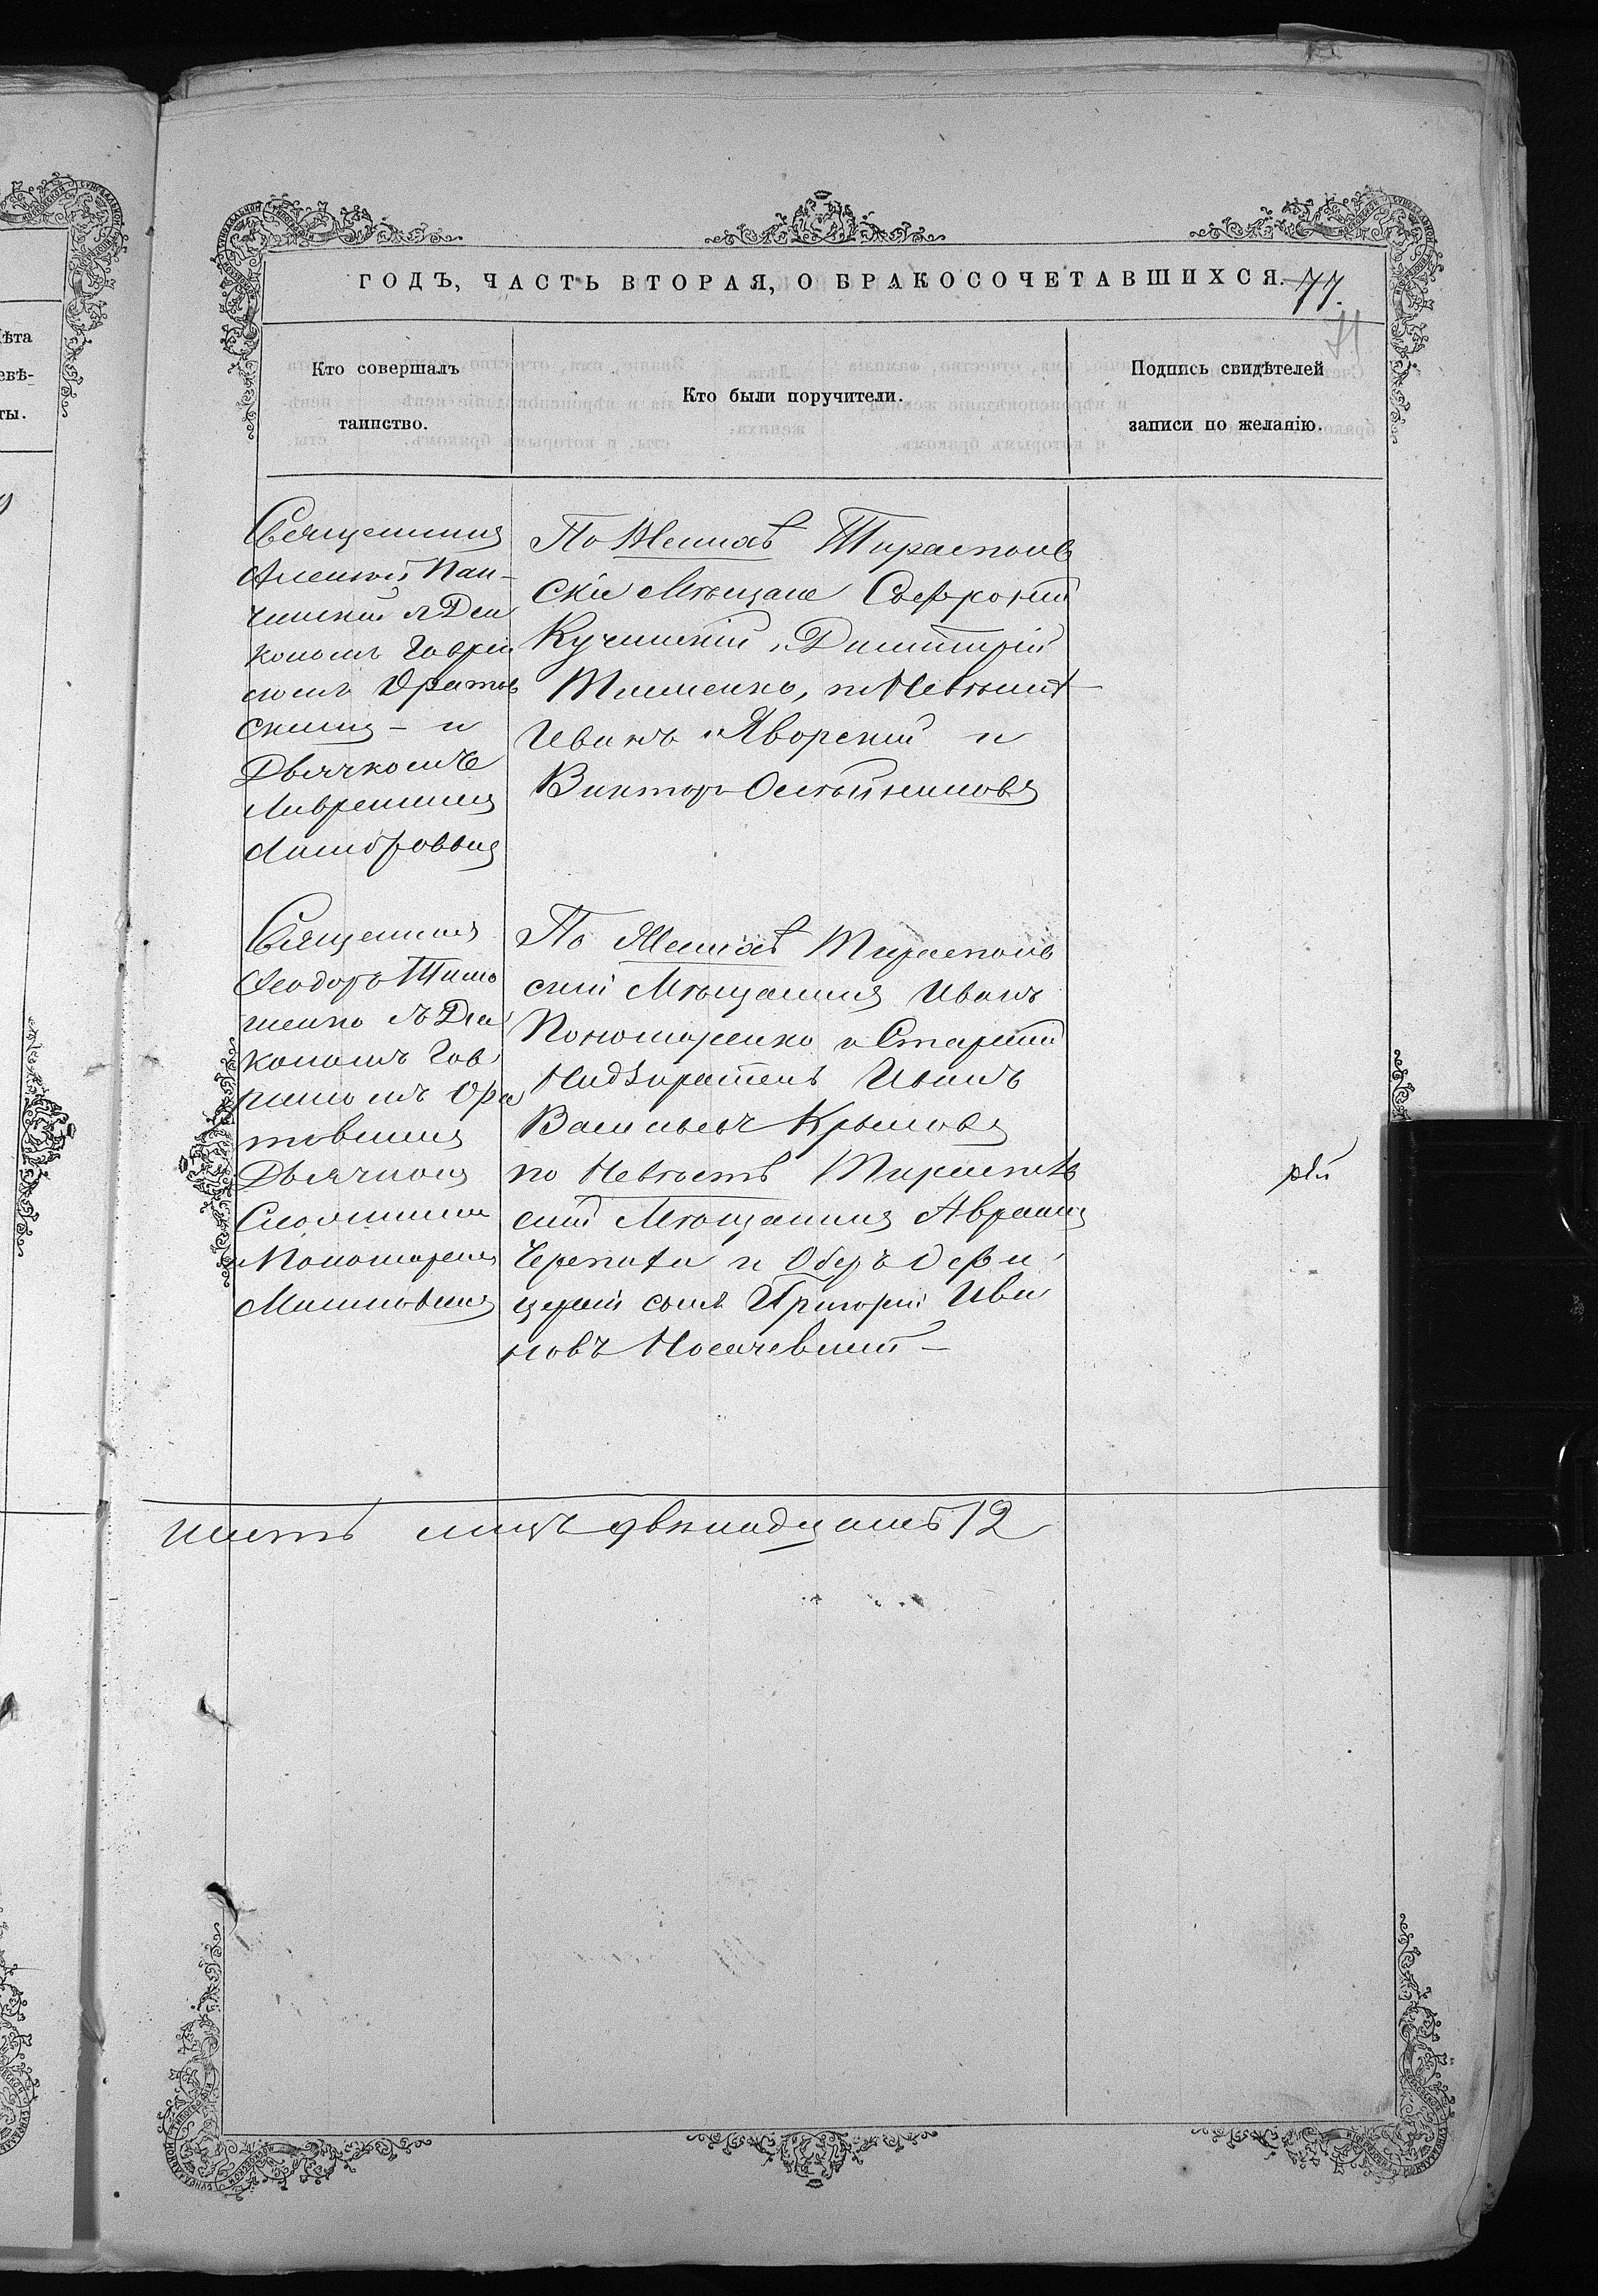 ГОДЪ, ЧАСТЬ ВТОРАЯ, О БРАКОСОЧЕТАВШИХСЯ. 77.
71
Кто совершалъ
таинство.
Кто были поручители.
Подпись свидѣтелей
записи по желанію.
Священникъ
Алексѣй Пан-
чинскій съ Діа
кономъ Гаврі
иломъ Оратов
скимъ - и
Дьячкомъ
Лаврентіемъ
По Женихѣ Тирасполь
скіе Мѣщане Софроній
Кучинскій, Димитрій
Тимченко, по Невѣстѣ
Иванъ Яворскій и
Викторъ Олейниковъ
Священникъ
Ѳеодоръ Тимо
шенко съ Діа
кономъ Гав
ріиломъ Ора
товскимъ
Дьячкомъ
Пономаремъ
По Женихѣ Тирасполь
скій Мѣщанинъ Иванъ
Пономаренко и Старшій
Надзиратель Иванъ
Васильевъ Крыловъ
по Невѣстѣ Тирасполь
скій Мѣщанинъ Авраамъ
Черепаха и Оберъ Офи
церскій сынъ Григорій Ива
новъ Носачевскій -
шесть лицъ двѣнадцать 12
ѣта
евѣ-
ты.